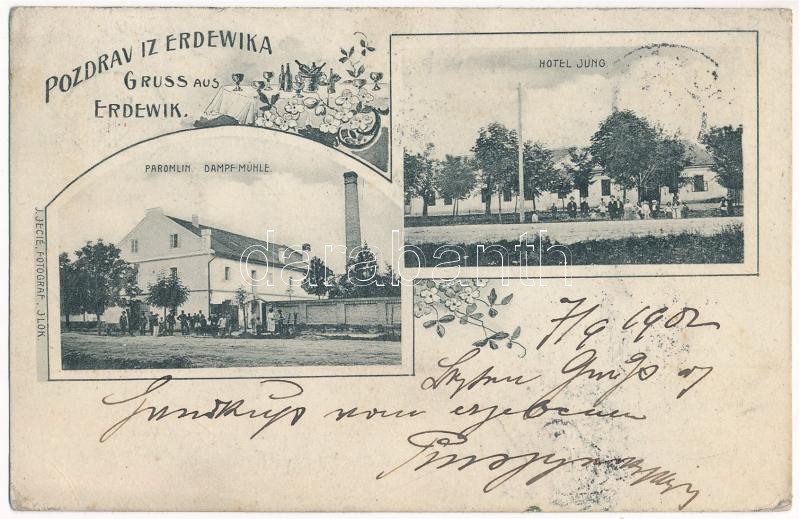 POZDRAV IZ ERDEWIKA
GRUSS AUS
ERDEWIK.
HOTEL JUNG
PAROMLIN. DAMPF-MÜHLE.
J. JECIĆ, FOTOGRAF. JLOK.
darabanth
7/9 1902
Gruß
Handkuß vom ergebenen